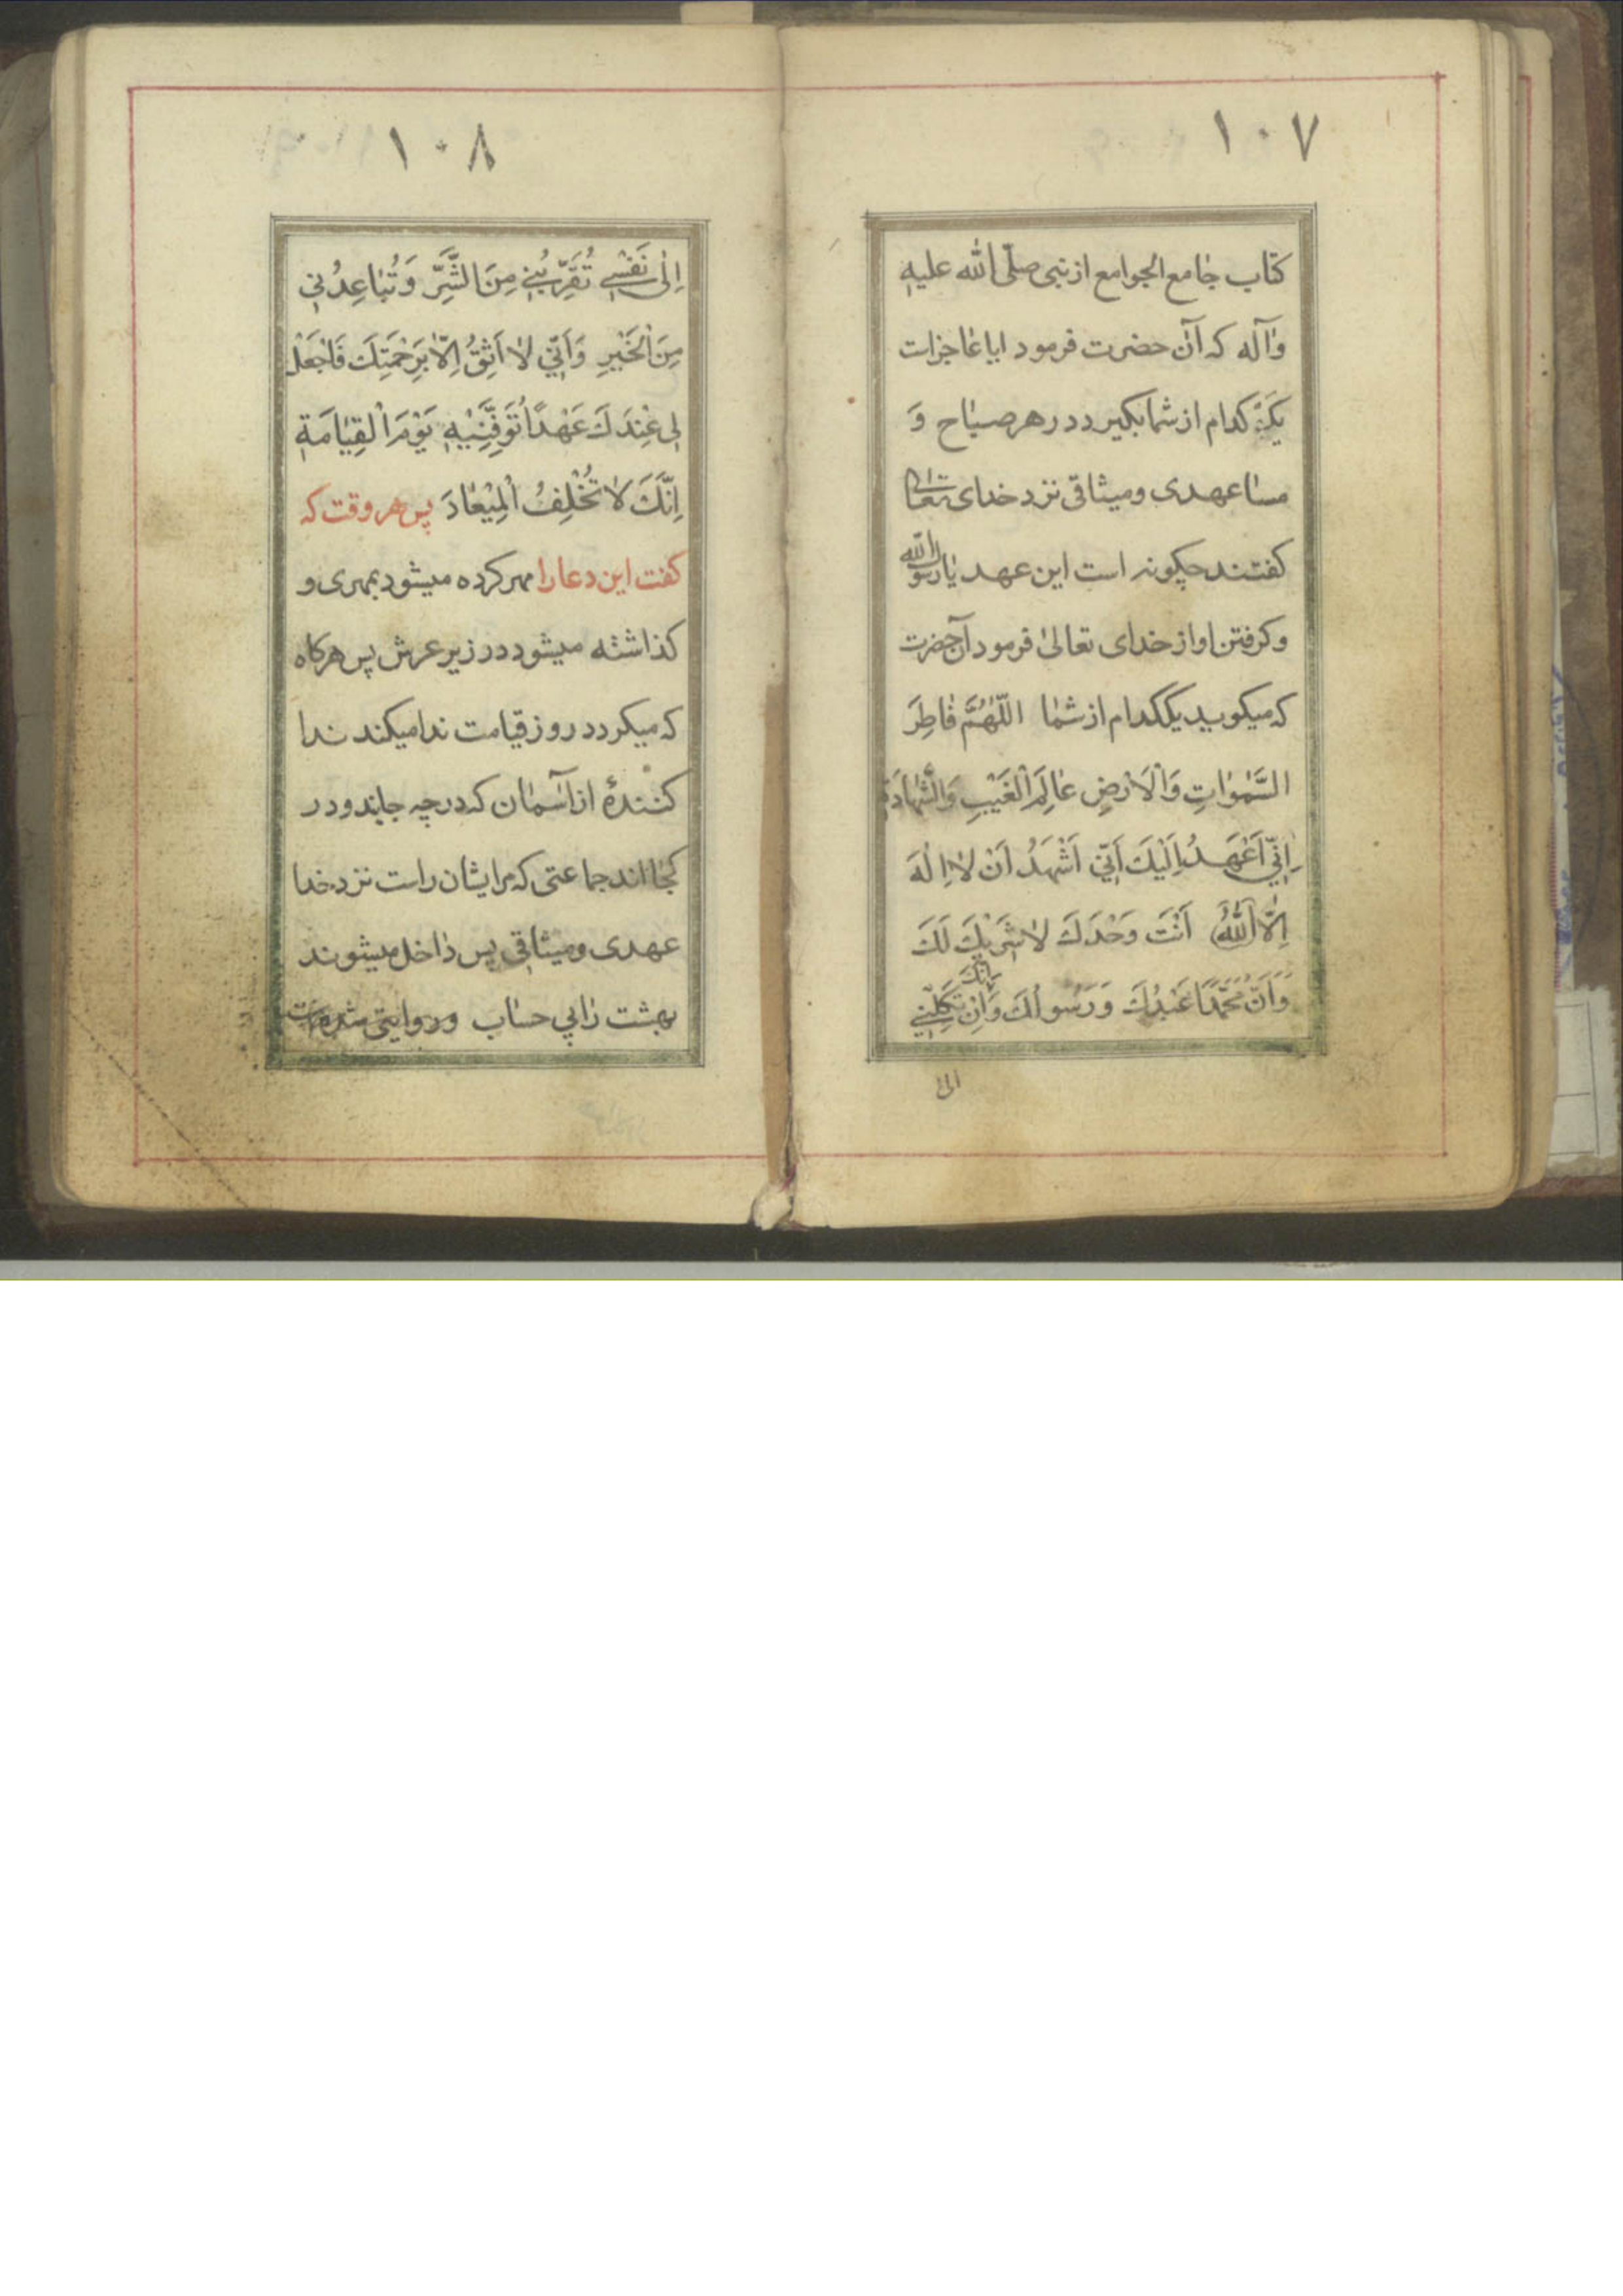 ۱۰۷
کتاب جامع الجوامع از نبی صلّی الله علیه
وآله که آن حضرت فرمود ایا عاجز است
یک کدام از شما بکیرد در هر صباح وَ
مسا عهدی و میثاقی نزد خدای تعالی
کفتند چکونه است این عهد یا رسول الله
و کرفتن او از خدای تعالیٰ فرمود آن حضرت
که میکوید یککدام از شما اللّٰهُمَّ فاطِرَ
السَّمٰوٰاتِ وَالْاَرْضِ عٰالِمَ الْغَیْبِ وَالشَّهٰادَةِ
اِنّی اَعْهَدُ اِلَیْكَ اَنّی اَشْهَدُ اَنْ لٰا اِلٰهَ
اِلَّا اللّٰهُ اَنْتَ وَحْدَكَ لٰا شَرِیْكَ لَكَ
وَاَنَّ مُحَمَّدًا عَبْدُكَ وَرَسُولُكَ وَاِنْ تَكِلْنِي
الیٰ
۱۰۸
اِلیٰ نَفْسِي تُقَرِّبُنِي مِنَ الشَّرِّ وَتُبٰاعِدُنِي
مِنَ الْخَیْرِ وَاَنّی لٰا اَثِقُ اِلّٰا بِرَحْمَتِكَ فَاجْعَلْ
لِی عِنْدَكَ عَهْدًا تُوَفِّنِیهِ یَوْمَ الْقِیٰامَةِ
اِنَّكَ لٰا تُخْلِفُ الْمِیْعٰادَ پس هر وقت که
کفت این دعا را مهر کرده میشود بمهری و
کذاشته میشود در زیر عرش پس هرکاه
که میکردد روز قیامت ندا میکند ندا
کنندهٔ از آسمان که در چه جایند و در
کجا اند جماعتی که مر ایشان راست نزد خدا
عهدی و میثاقی پس داخل میشوند
بهشت را بی حساب و روایتی